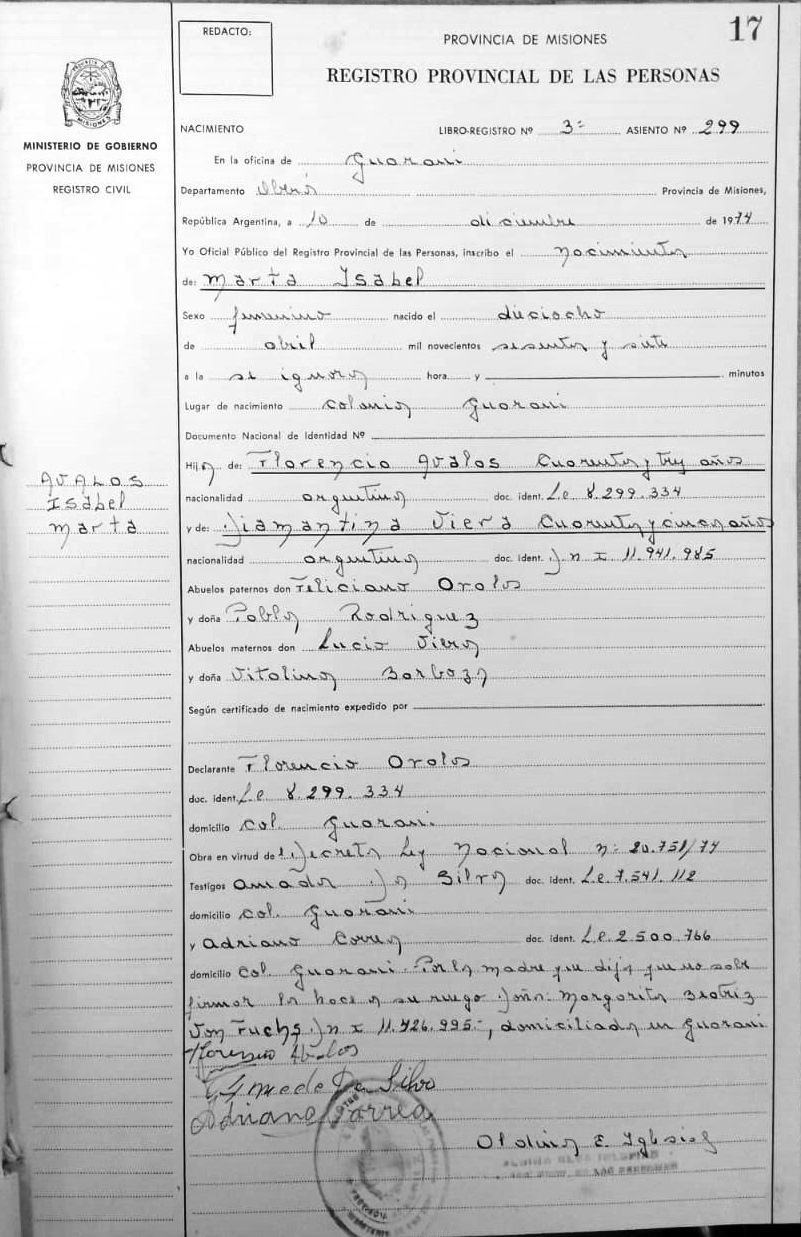 REDACTO:
17
PROVINCIA DE MISIONES
REGISTRO PROVINCIAL DE LAS PERSONAS
MINISTERIO DE GOBIERNO
PROVINCIA DE MISIONES
REGISTRO CIVIL
NACIMIENTO LIBRO-REGISTRO Nº 3º ASIENTO Nº 299
En la oficina de Guarani
Departamento Oberá Provincia de Misiones,
República Argentina, a 10 de diciembre de 1974
Yo Oficial Público del Registro Provincial de las Personas, inscribo el nacimiento
de: Marta Isabel
Sexo femenino nacido el dieciocho
de abril mil novecientos sesenta y siete
a la se ignora hora y minutos
Lugar de nacimiento colonia Guarani
Documento Nacional de Identidad Nº
Hija de: Florencio Avalos Cuarenta y tres años
nacionalidad argentina doc. ident. L.e 8.299.334
y de: Diamantina Viera Cuarenta y cinco años
nacionalidad argentina doc. ident. D n I 11.941.985
AVALOS
Isabel
Marta
Abuelos paternos don Feliciano Orolos
y doña Pabla Rodriguez
Abuelos maternos don Lucio Viera
y doña Vitalina Barboza
Según certificado de nacimiento expedido por
Declarante Florencio Orolos
doc. ident. L.e 8.299.334
domicilio Col. Guarani.
Obra en virtud de Decreto Ley Nacional nº 20.751/74
Testigos Amador Da Silva doc. ident. L.e. 7.541.112
domicilio Col. Guarani
y Adriano Correa doc. ident. L.e. 2.500.766
domicilio Col. Guarani. Por la madre que dijo que no sabe
firmar lo hace a su ruego doña: Margarita Beatriz
Von Fuchs D n I 11.426.995.-, domiciliada en Guarani
Florencio Avalos
Da Silva
Adriano Correa
Oldina E. Iglesias